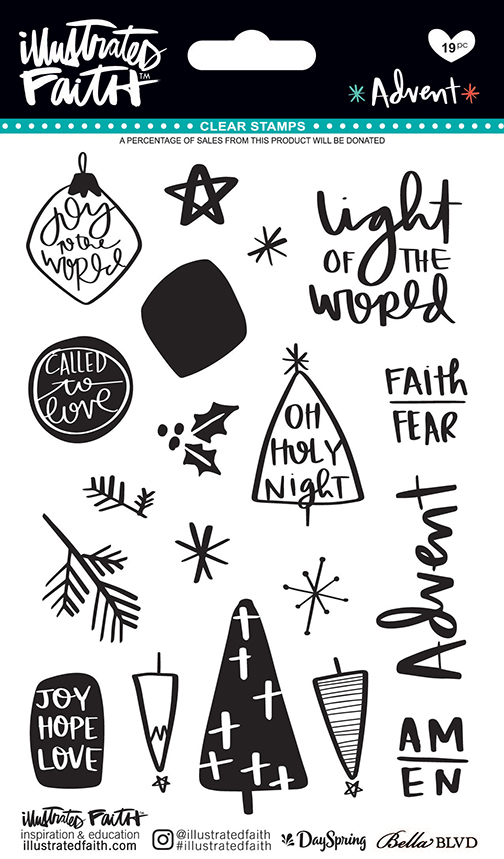 illustrated
FAITH™
19pc
Advent
CLEAR STAMPS
A PERCENTAGE OF SALES FROM THIS PRODUCT WILL BE DONATED
joy
to the
world
light
OF THE
world
CALLED
to
love
FAITh
FEAR
OH
HOLY
NighT
Advent
JOY
HOPE
LOVE
AM
EN
illustrated FAITH™
inspiration & education
illustratedfaith.com
@illustratedfaith
#illustratedfaith
DaySpring
Bella BLVD